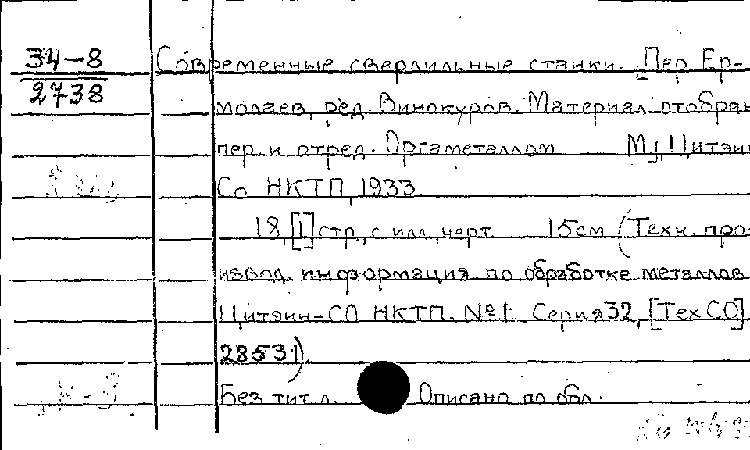 34-8 Современные сверлильные станки. [Пер Ер-
2738 молаев, ред. Винокуров. Материал отобран
пер. и отред. Оргаметаллом М., Цитэин
Со НКТП, 1933
18, [1] стр., с илл., черт. 15см (Техн. про-
извод. информация по обработке металлов
Цитэин-СО НКТП. №1. Серия 32, [Тех СО]
28531)
Без тит. л. Описано по обл.